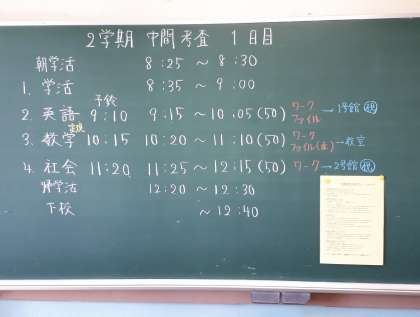 2学期 中間考査 1日目
朝学活 8:25 ～ 8:30
1. 学活 8:35 ～ 9:00
予鈴
2. 英語 9:10 9:15 ～ 10:05 (50) ワーク ファイル → 1号館
3. 数学 10:15 10:20 ～ 11:10 (50) ワーク ファイル → 教室
4. 社会 11:20 11:25 ～ 12:15 (50) ワーク → 2号館
帰学活 12:20 ～ 12:30
下校 ～ 12:40